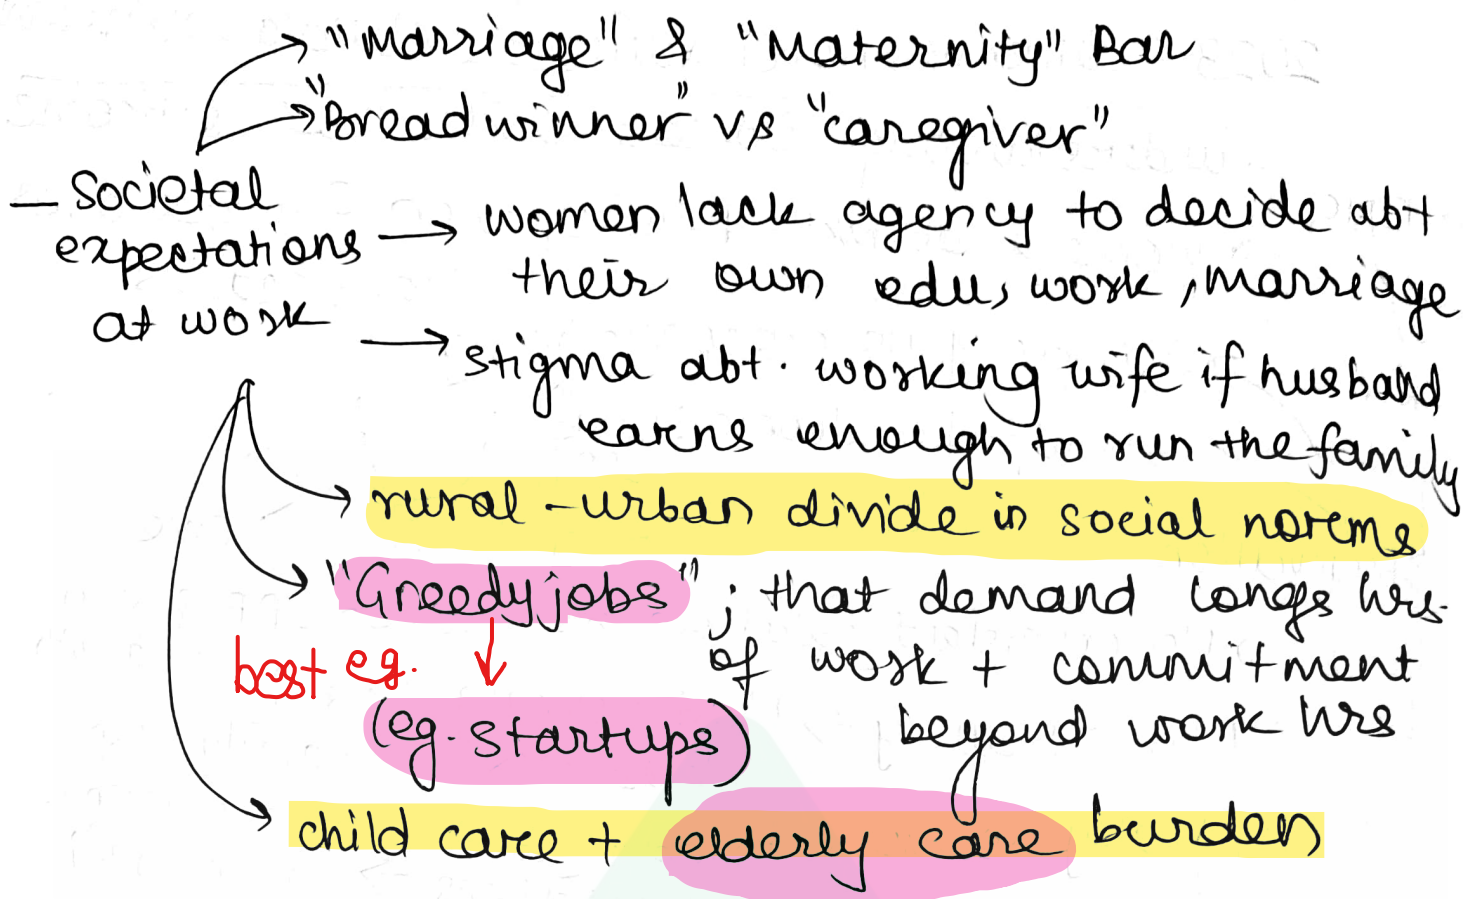 "Marriage" & "Maternity" Bar
"Bread winner" vs "caregiver"
– Societal expectations at work
women lack agency to decide abt
their own edu, work, marriage
stigma abt. working wife if husband
earns enough to run the family
rural-urban divide in social norms
"Greedy jobs" ; that demand longs hrs.
of work + commitment
beyond work hrs
best eg.
(eg. startups)
child care + elderly care burden